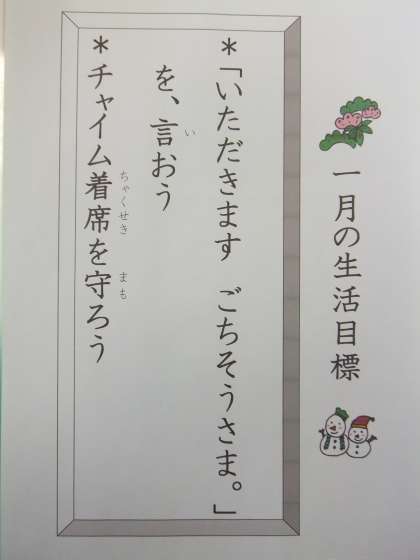 一月の生活目標
＊「いただきます　ごちそうさま。」
を、言おう
い
＊チャイム着席を守ろう
ちゃくせき　まも